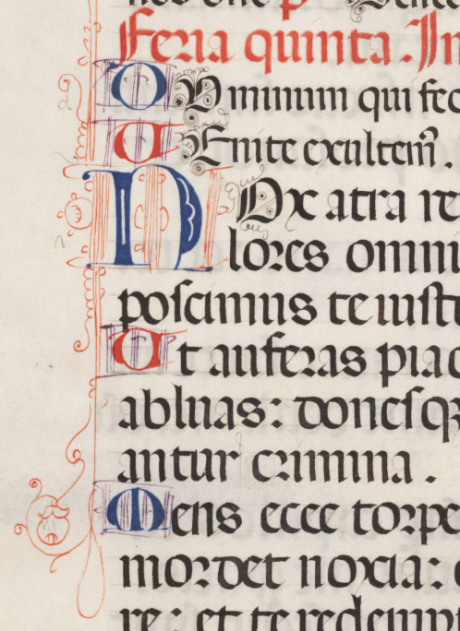 Feria quinta. In
DOminum qui fec
VEnite exultem̃.
NOx atra re
lores omni
poscimus te iuste
Ut auferas piac
abluas: donesq
antur crimina.
Mens ecce torpe
mordet noxia:
re: et te redempt